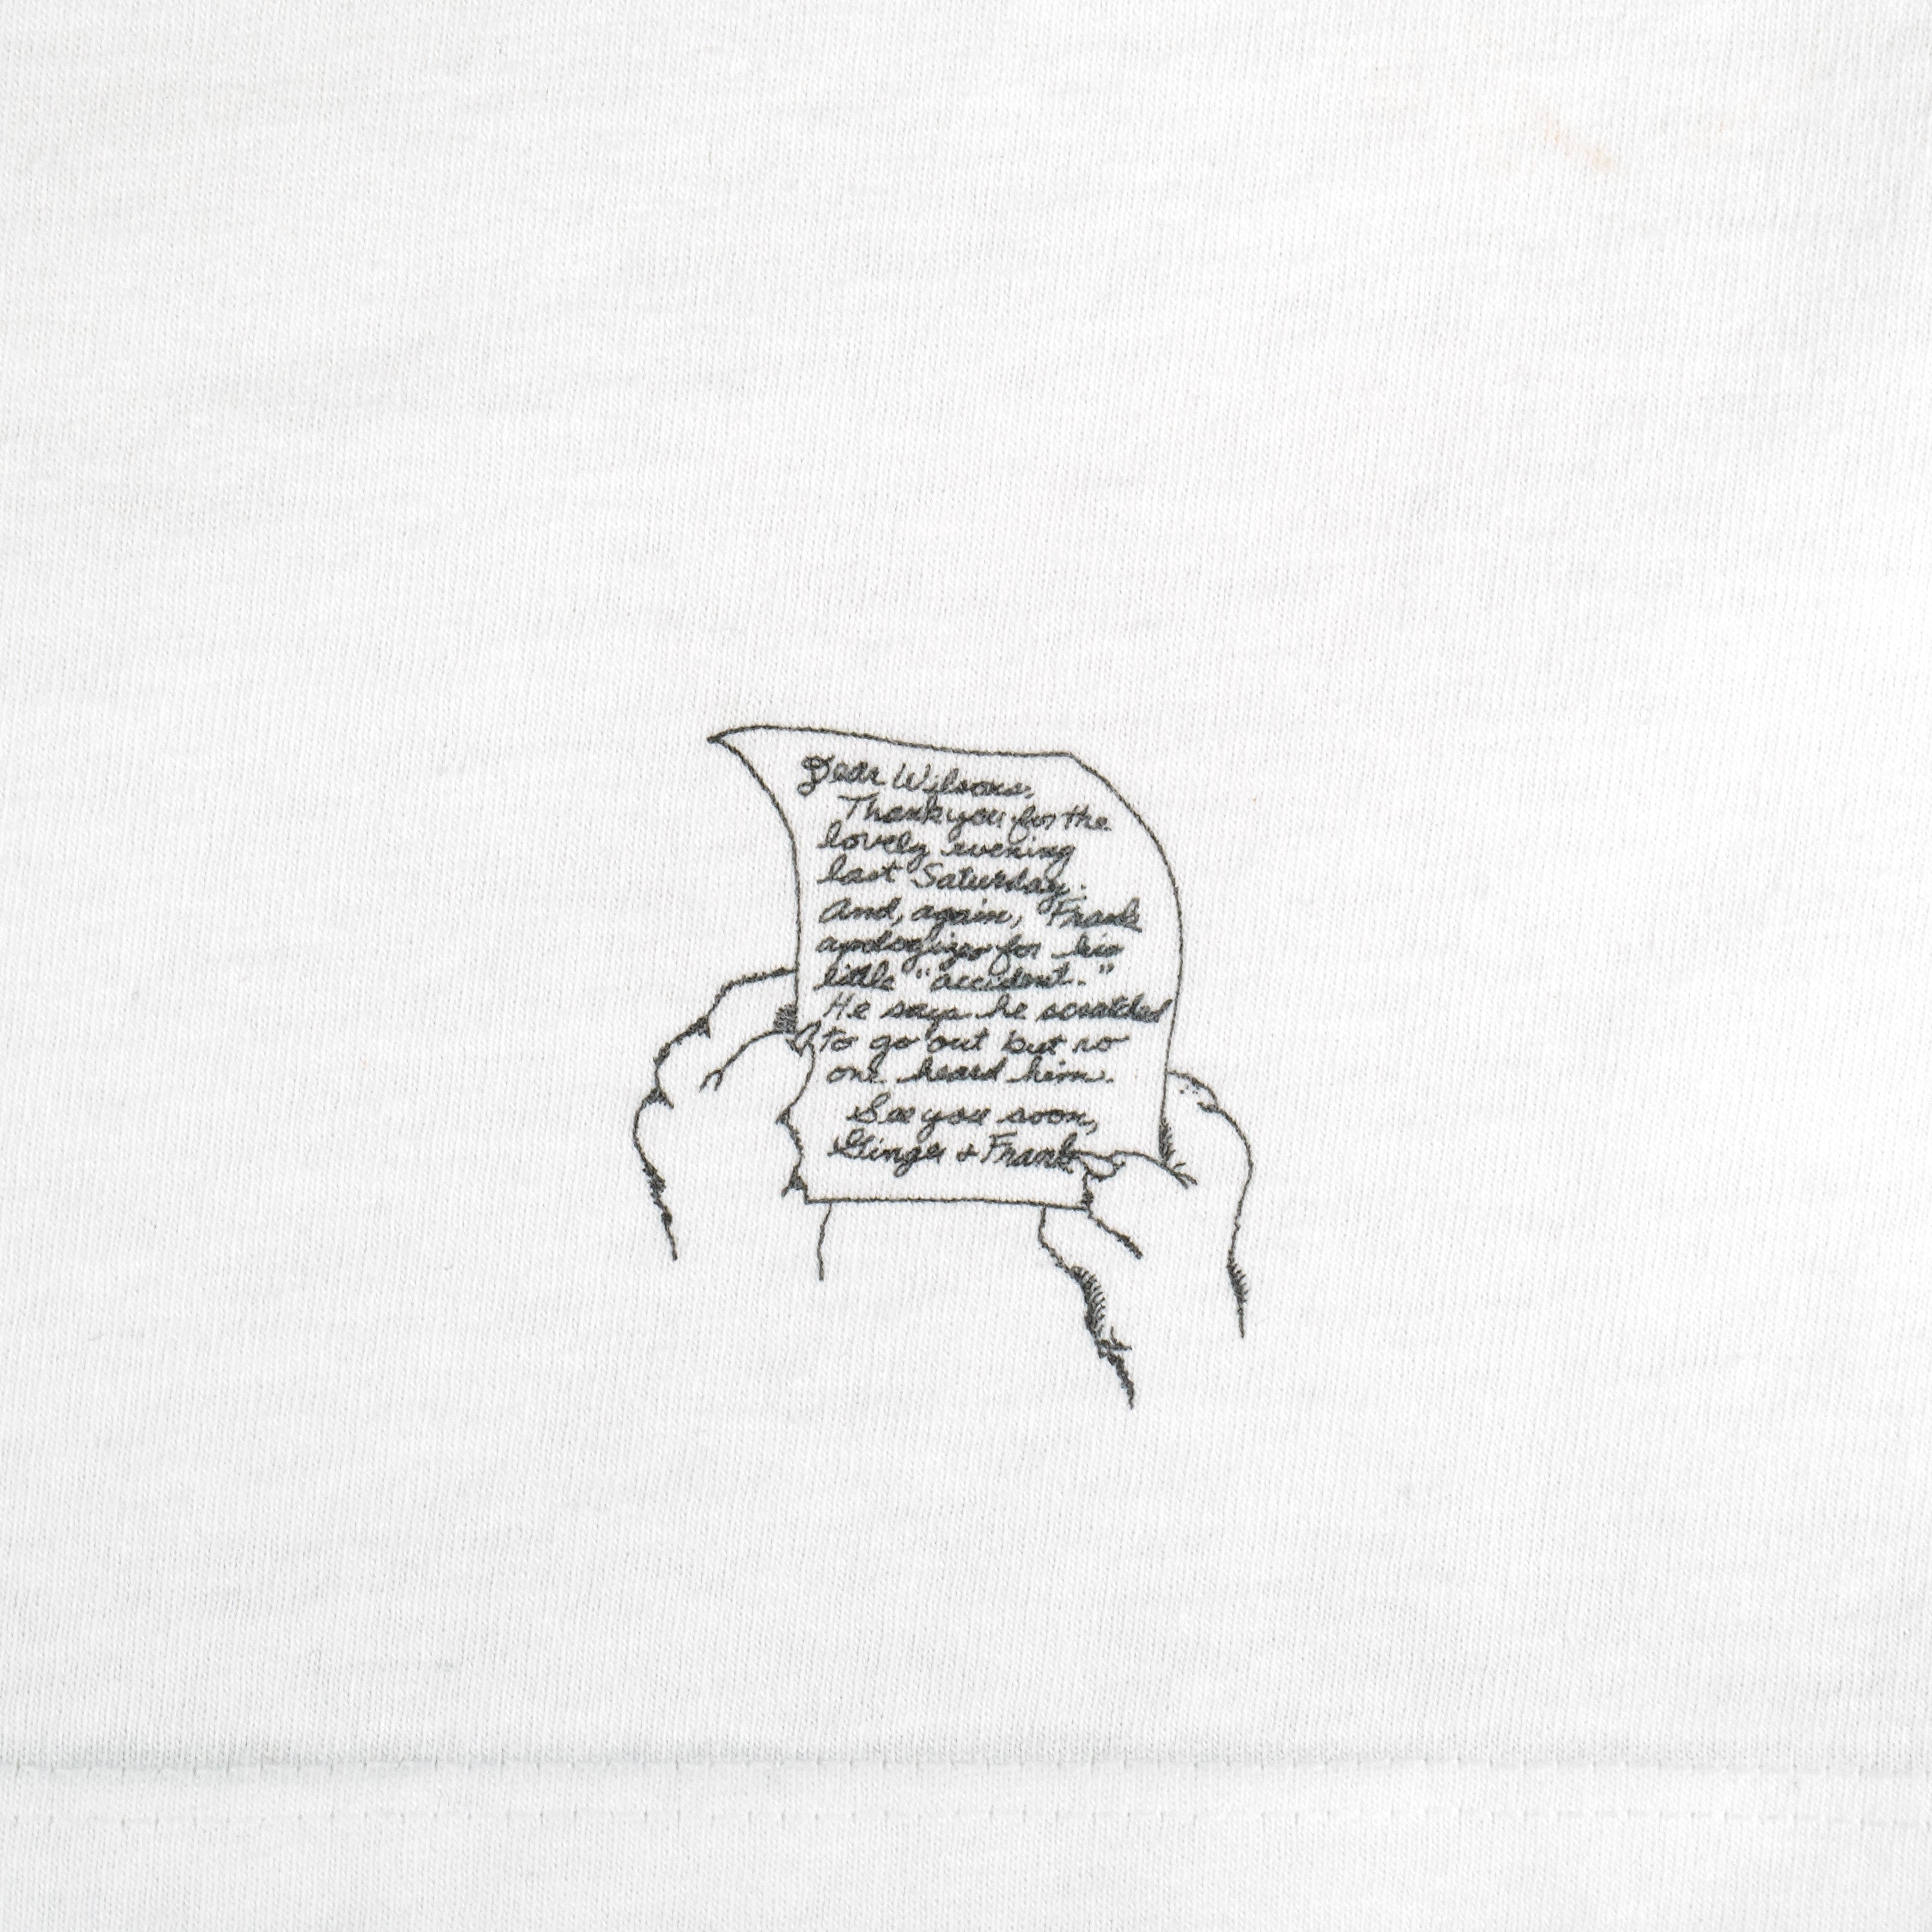 Dear Wilsons,
Thank you for the
lovely evening
last Saturday.
And, again, Frank
apologizes for his
little "accident."
He says he scratched
to go out but no
one heard him.
See you soon,
Ginger & Frank